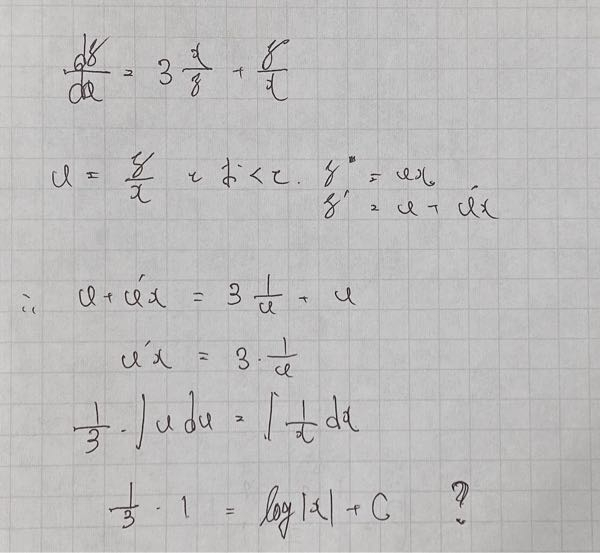 dy/dx = 3 x/y + y/x
u = y/x とおくと. y = ux
y' = u + u'x
∴ u + u'x = 3 1/u + u
u'x = 3 · 1/u
1/3 · ∫ u du = ∫ 1/x dx
1/3 · 1 = log|x| + C ?